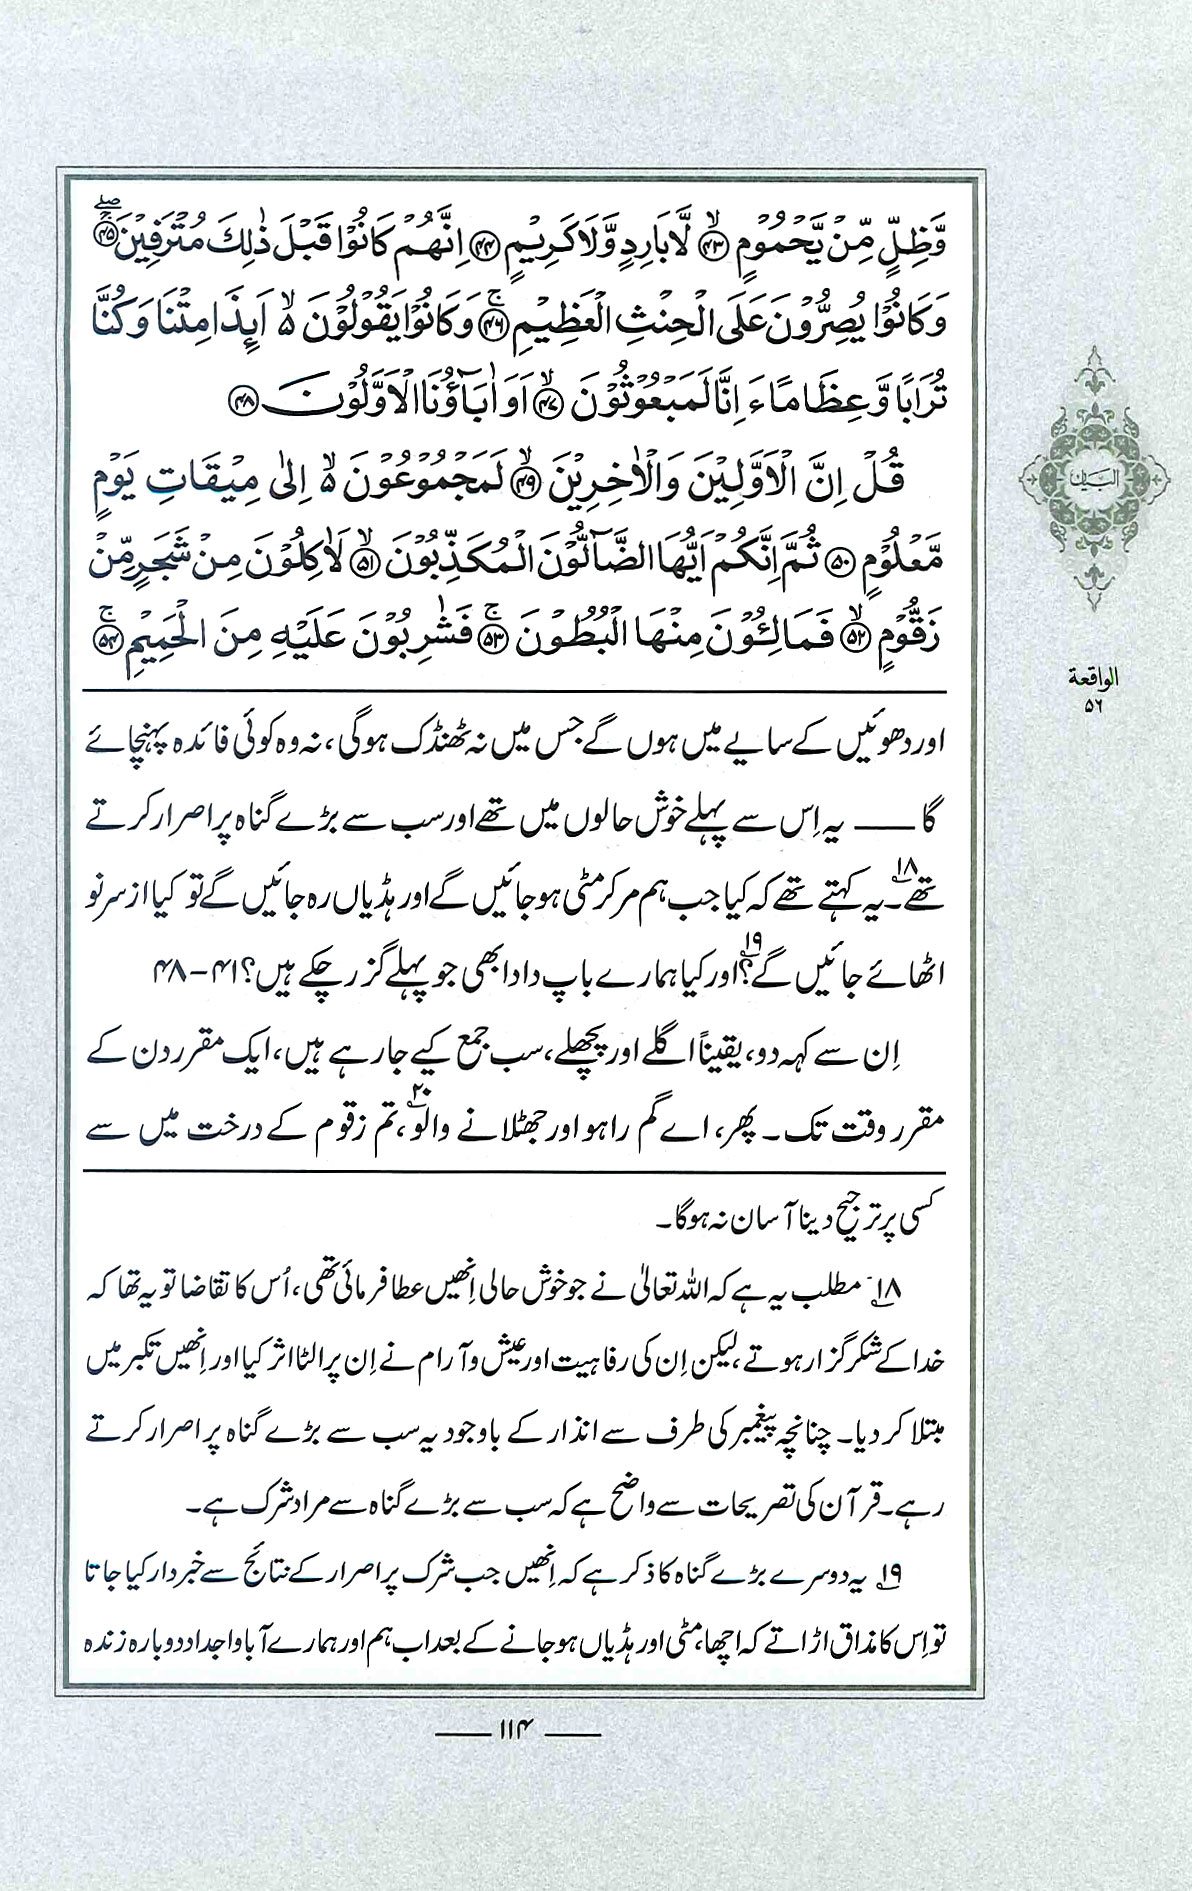 وَّظِلٍّ مِّنْ يَّحْمُوْمٍ ۙ﴿۴۳﴾ لَّا بَارِدٍ وَّلَا كَرِيْمٍ ﴿۴۴﴾ اِنَّهُمْ كَانُوْا قَبْلَ ذٰلِكَ مُتْرَفِيْنَ ۖ﴿۴۵﴾
وَكَانُوْا يُصِرُّوْنَ عَلَى الْحِنْثِ الْعَظِيْمِ ۚ﴿۴۶﴾ وَكَانُوْا يَقُوْلُوْنَ ۙ۵ اَئِذَا مِتْنَا وَكُنَّا
تُرَابًا وَّعِظَامًا ءَاِنَّا لَمَبْعُوْثُوْنَ ۙ﴿۴۷﴾ اَوَاٰبَآؤُنَا الْاَوَّلُوْنَ ﴿۴۸﴾
قُلْ اِنَّ الْاَوَّلِيْنَ وَالْاٰخِرِيْنَ ۙ﴿۴۹﴾ لَمَجْمُوْعُوْنَ ۙ۵ اِلٰى مِيْقَاتِ يَوْمٍ
مَّعْلُوْمٍ ﴿۵۰﴾ ثُمَّ اِنَّكُمْ اَيُّهَا الضَّآلُّوْنَ الْمُكَذِّبُوْنَ ۙ﴿۵۱﴾ لَاٰكِلُوْنَ مِنْ شَجَرٍ مِّنْ
زَقُّوْمٍ ۙ﴿۵۲﴾ فَمَالِئُوْنَ مِنْهَا الْبُطُوْنَ ۚ﴿۵۳﴾ فَشٰرِبُوْنَ عَلَيْهِ مِنَ الْحَمِيْمِ ۚ﴿۵۴﴾
اور دھوئیں کے سایے میں ہوں گے جس میں نہ ٹھنڈک ہوگی، نہ وہ کوئی فائدہ پہنچائے
گا —— یہ اِس سے پہلے خوش حالوں میں تھے اور سب سے بڑے گناہ پر اصرار کرتے
تھے۔۱۸ یہ کہتے تھے کہ کیا جب ہم مر کر مٹی ہو جائیں گے اور ہڈیاں رہ جائیں گے تو کیا از سر نو
اٹھائے جائیں گے؟۱۹ اور کیا ہمارے باپ دادا بھی جو پہلے گزر چکے ہیں؟ ۴۱-۴۸
اِن سے کہہ دو، یقیناً اگلے اور پچھلے، سب جمع کیے جا رہے ہیں، ایک مقرر دن کے
مقرر وقت تک۔ پھر، اے گم راہو اور جھٹلانے والو،۲۰ تم زقوم کے درخت میں سے
کسی پر ترجیح دینا آسان نہ ہوگا۔
۱۸؎ مطلب یہ ہے کہ اللہ تعالیٰ نے جو خوش حالی اِنھیں عطا فرمائی تھی، اُس کا تقاضا تو یہ تھا کہ
خدا کے شکر گزار ہوتے، لیکن اِن کی رفاہیت اور عیش و آرام نے اِن پر الٹا اثر کیا اور اِنھیں تکبر میں
مبتلا کر دیا۔ چنانچہ پیغمبر کی طرف سے انذار کے باوجود یہ سب سے بڑے گناہ پر اصرار کرتے
رہے۔ قرآن کی تصریحات سے واضح ہے کہ سب سے بڑے گناہ سے مراد شرک ہے۔
۱۹؎ یہ دوسرے بڑے گناہ کا ذکر ہے کہ اِنھیں جب شرک پر اصرار کے نتائج سے خبردار کیا جاتا
تو اِس کا مذاق اڑاتے کہ اچھا، مٹی اور ہڈیاں ہو جانے کے بعد اب ہم اور ہمارے آبا و اجداد دوبارہ زندہ
—— ۱۱۴ ——
البیان
الواقعة
۵۶